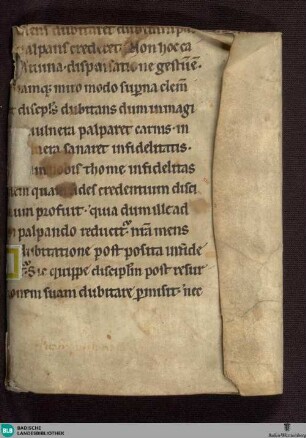 dubitaret dubitan pal
palpans crederet. Non hoc ca
diuina dispensatione gestu̅ e̅.
namq; miro modo sup̅na clem̅
ut discipl̅s dubitans dum in magi
uulnera palparet carnis. in
nera sanaret infidelitatis.
nobis thome infidelitas
dem quam fides credentium disci
um profuit. quia dum ille ad
palpando reducit̅. n̅ra mens
dubitatione post posita in fide
Sic quippe discipl̅m post resur
onem suam dubitare p̅misit. nec
BLB BADISCHE
LANDESBIBLIOTHEK
Baden-Württemberg